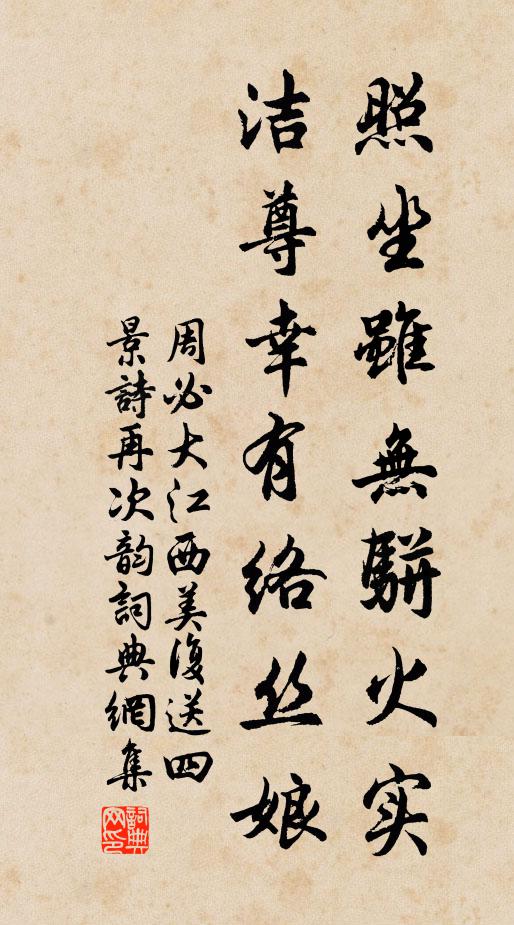 照坐雖無駢火实
洁尊幸有络丝娘
周必大江西美復送四
景詩再次韵詞典網集
詞典网印